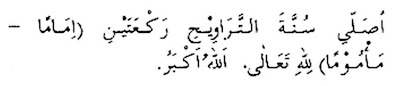 اُصَلِّي سُنَّةَ التَّرَاوِيْحِ رَكْعَتَيْنِ (اِمَامًا –
مَأْمُوْمًا) لِلّٰهِ تَعَالٰى. اَللّٰهُ اَكْبَرُ.